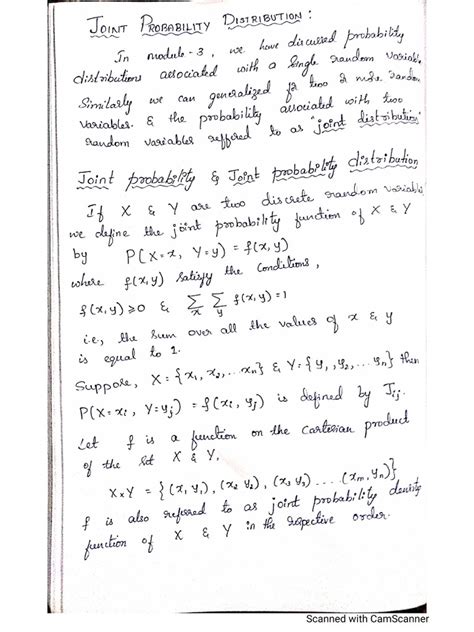 JOINT PROBABILITY DISTRIBUTION :
In module-3, we have discussed probability
distributions associated with a single random variable.
Similarly we can generalized for two & more random
variables. & the probability associated with two
random variables reffered to as "joint distribution"
Joint probability & Joint probability distribution
If X & Y are two discrete random variables
we define the joint probability function of X & Y
by P(X=x, Y=y) = f(x,y)
where f(x,y) satisfy the conditions,
f(x,y) ≥ 0 & ∑x ∑y f(x,y)=1
i.e., the sum over all the values of x & y
is equal to 1.
Suppose, X = {x₁, x₂, ... xₙ} & Y = {y₁, y₂, ... yₙ} then
P(X=xᵢ, Y=yⱼ) = f(xᵢ, yⱼ) is defined by Jᵢⱼ.
Let f is a function on the Cartesian product
of the set X & Y.
X×Y = {(x₁ y₁), (x₂ y₂), (x₃ y₃) .... (xₘ, yₙ)}
f is also reffered to as joint probability density
function of X & Y in the respective order.
Scanned with CamScanner